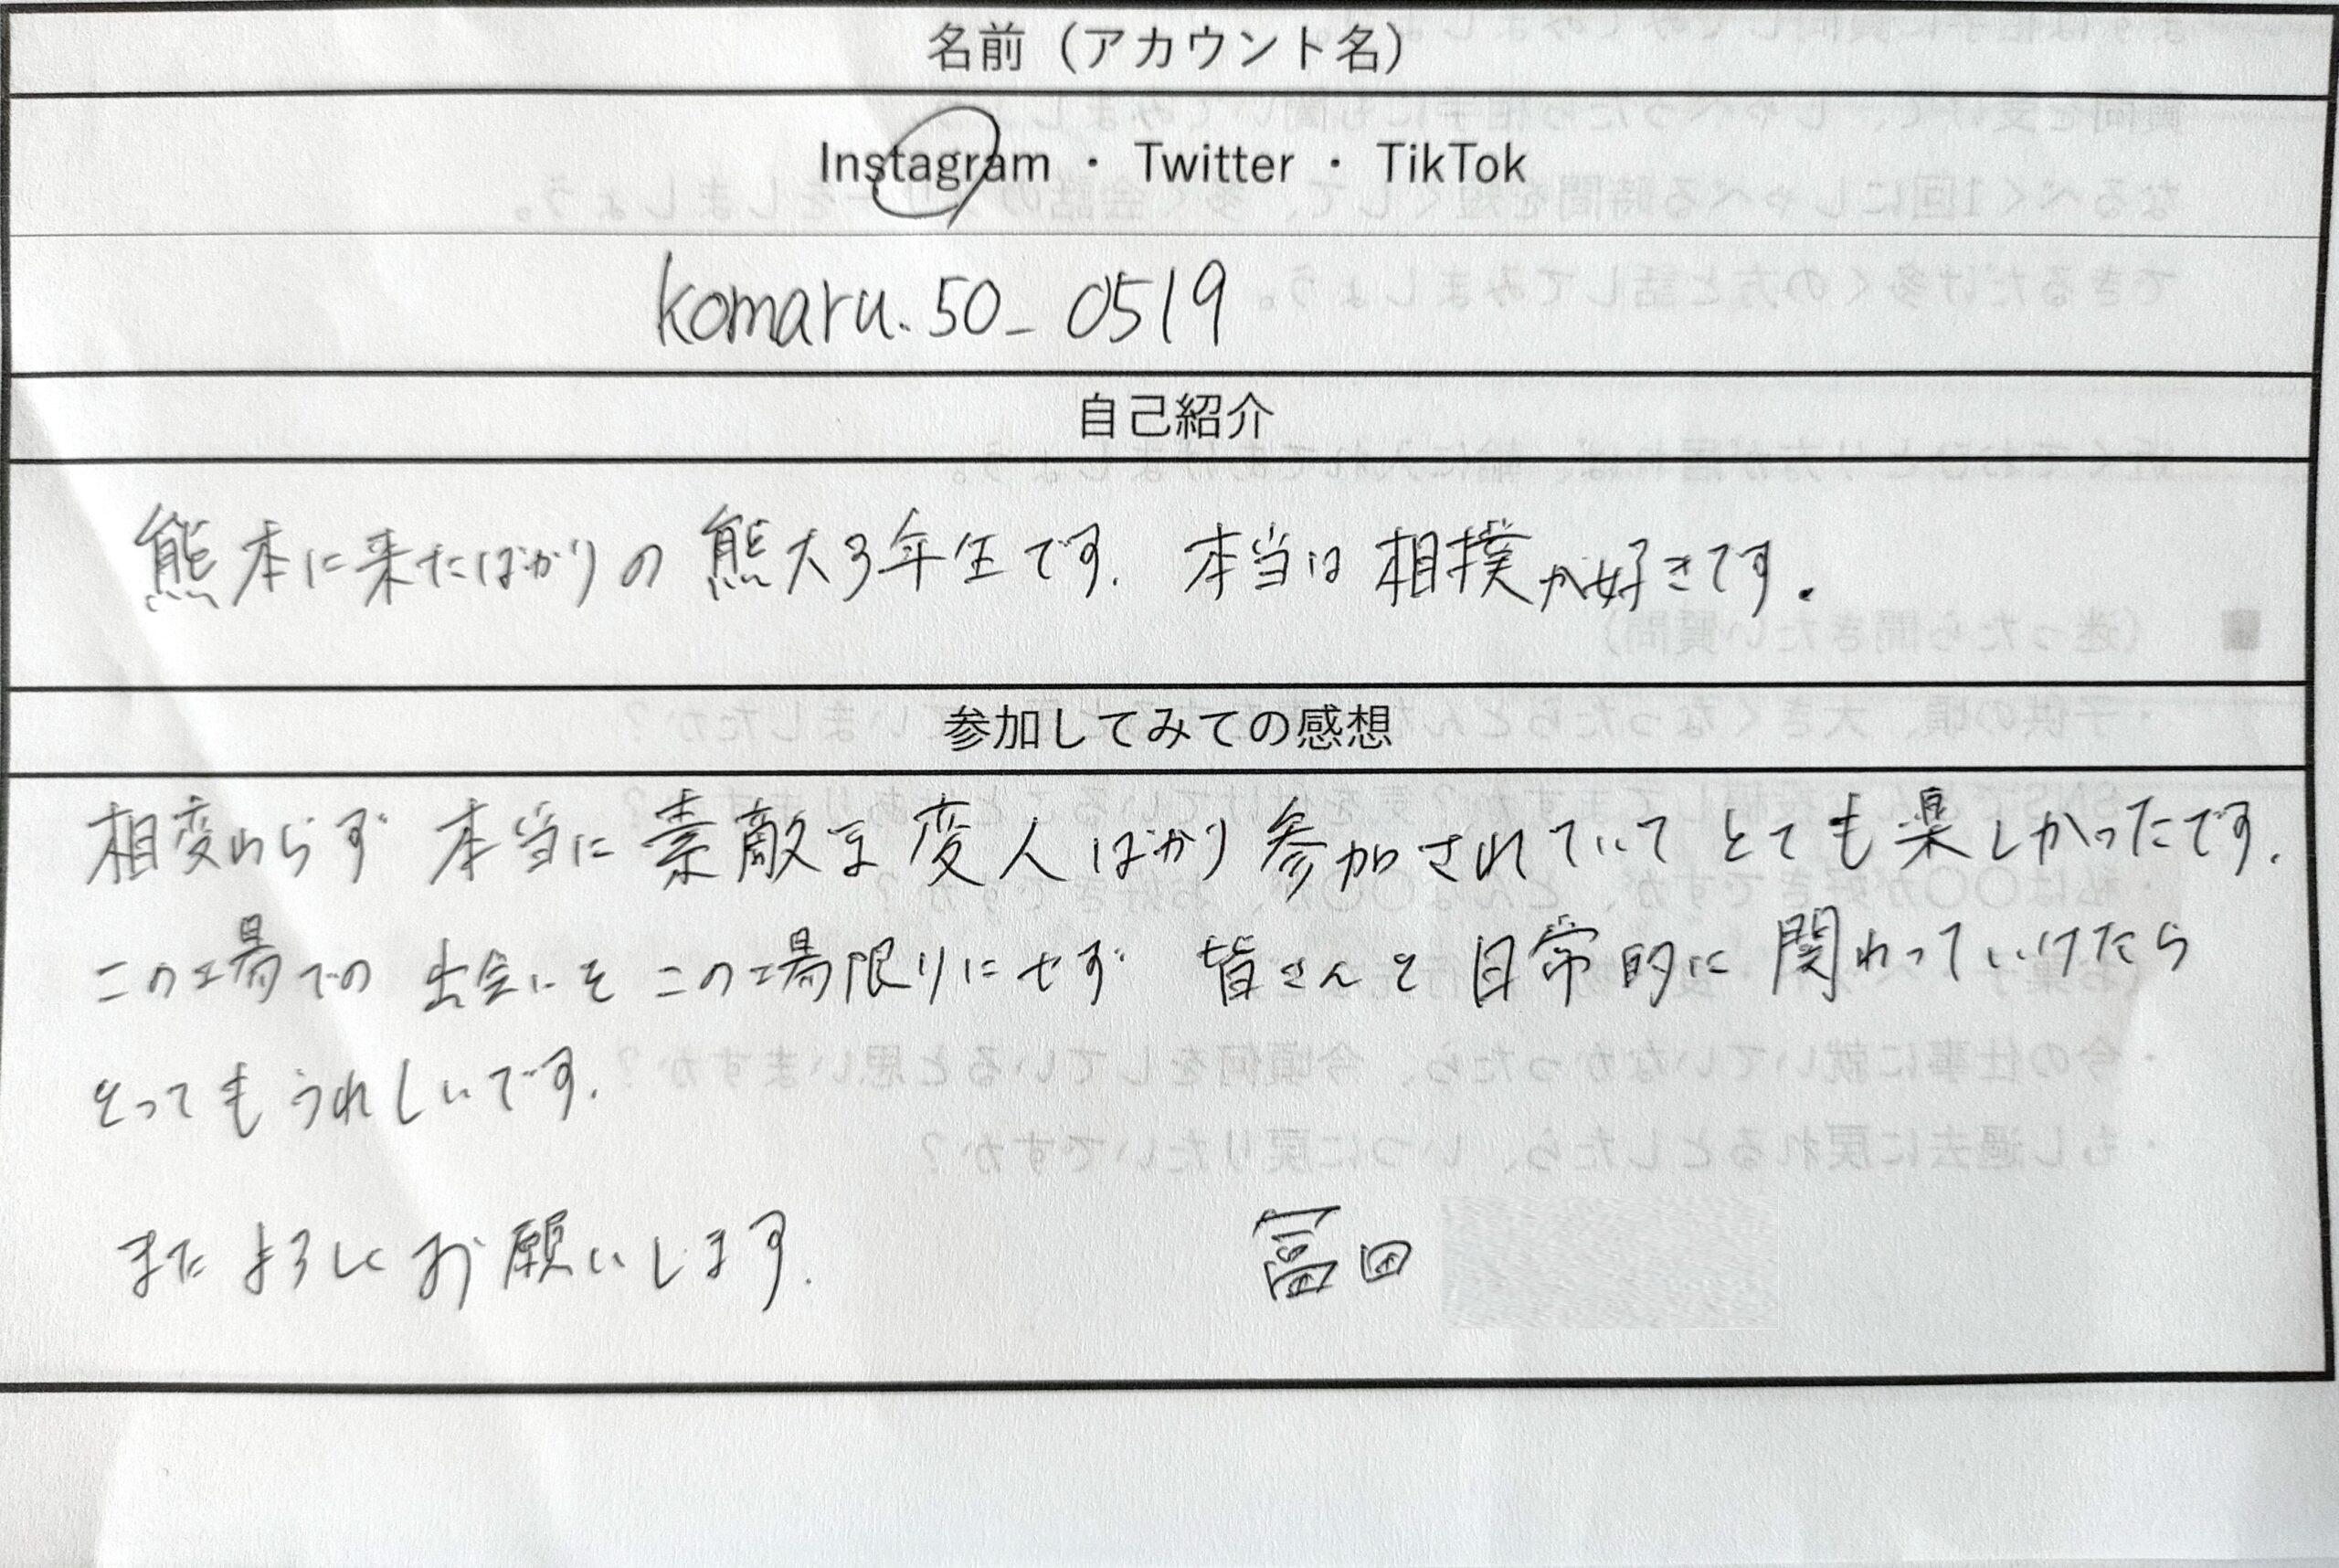 名前（アカウント名）
Instagram ・ Twitter ・ TikTok
komaru.50_0519
自己紹介
熊本に来たばかりの熊大3年生です. 本当は相撲が好きです.
参加してみての感想
相変わらず 本当に素敵な変人ばかり参加されていてとても楽しかったです.
この場での出会いをこの場限りにせず 皆さんと日常的に関わっていけたら
とってもうれしいです.
またよろしくお願いします. 冨田